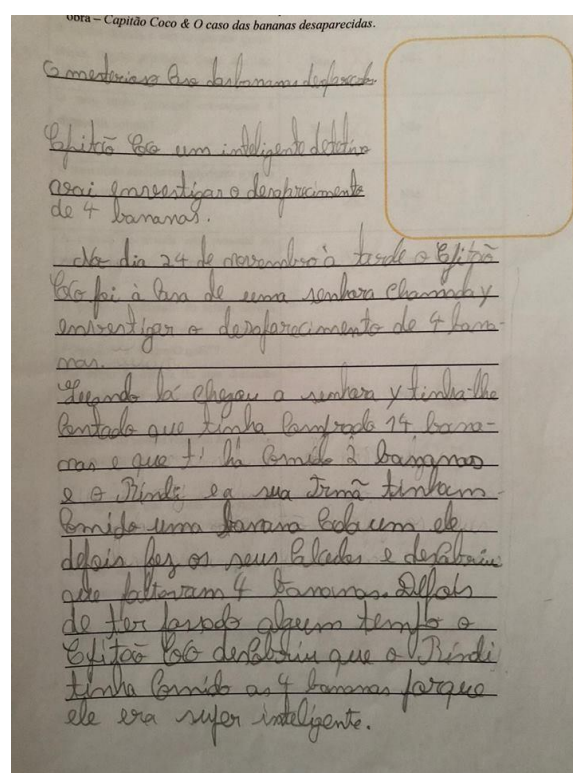 obra – Capitão Coco & O caso das bananas desaparecidas.
O mesterioso Caso das bananas desaparecidas
Capitão Coco um inteligente detetive
vai enveestigar o desaparecimento
de 4 bananas.
No dia 24 de novembro à tarde o Capitão
Coco foi à Casa de uma senhora chamada y
envestigar o desaparecimento de 4 bana-
nas.
Quando lá chegou a senhora y tinha-lhe
Contado que tinha Comprado 14 bana-
nas e que tinha Comido 2 bananas
e o Rindi e a sua Irmã tinham
Comido uma banana Cada um ele
depois fez os seus Calculos e descobriu
que faltavam 4 bananas. Depois
de ter passado algum tempo o
Capitão Coco descobriu que o Rindi
tinha Comido as 4 bananas porque
ele era super inteligente.